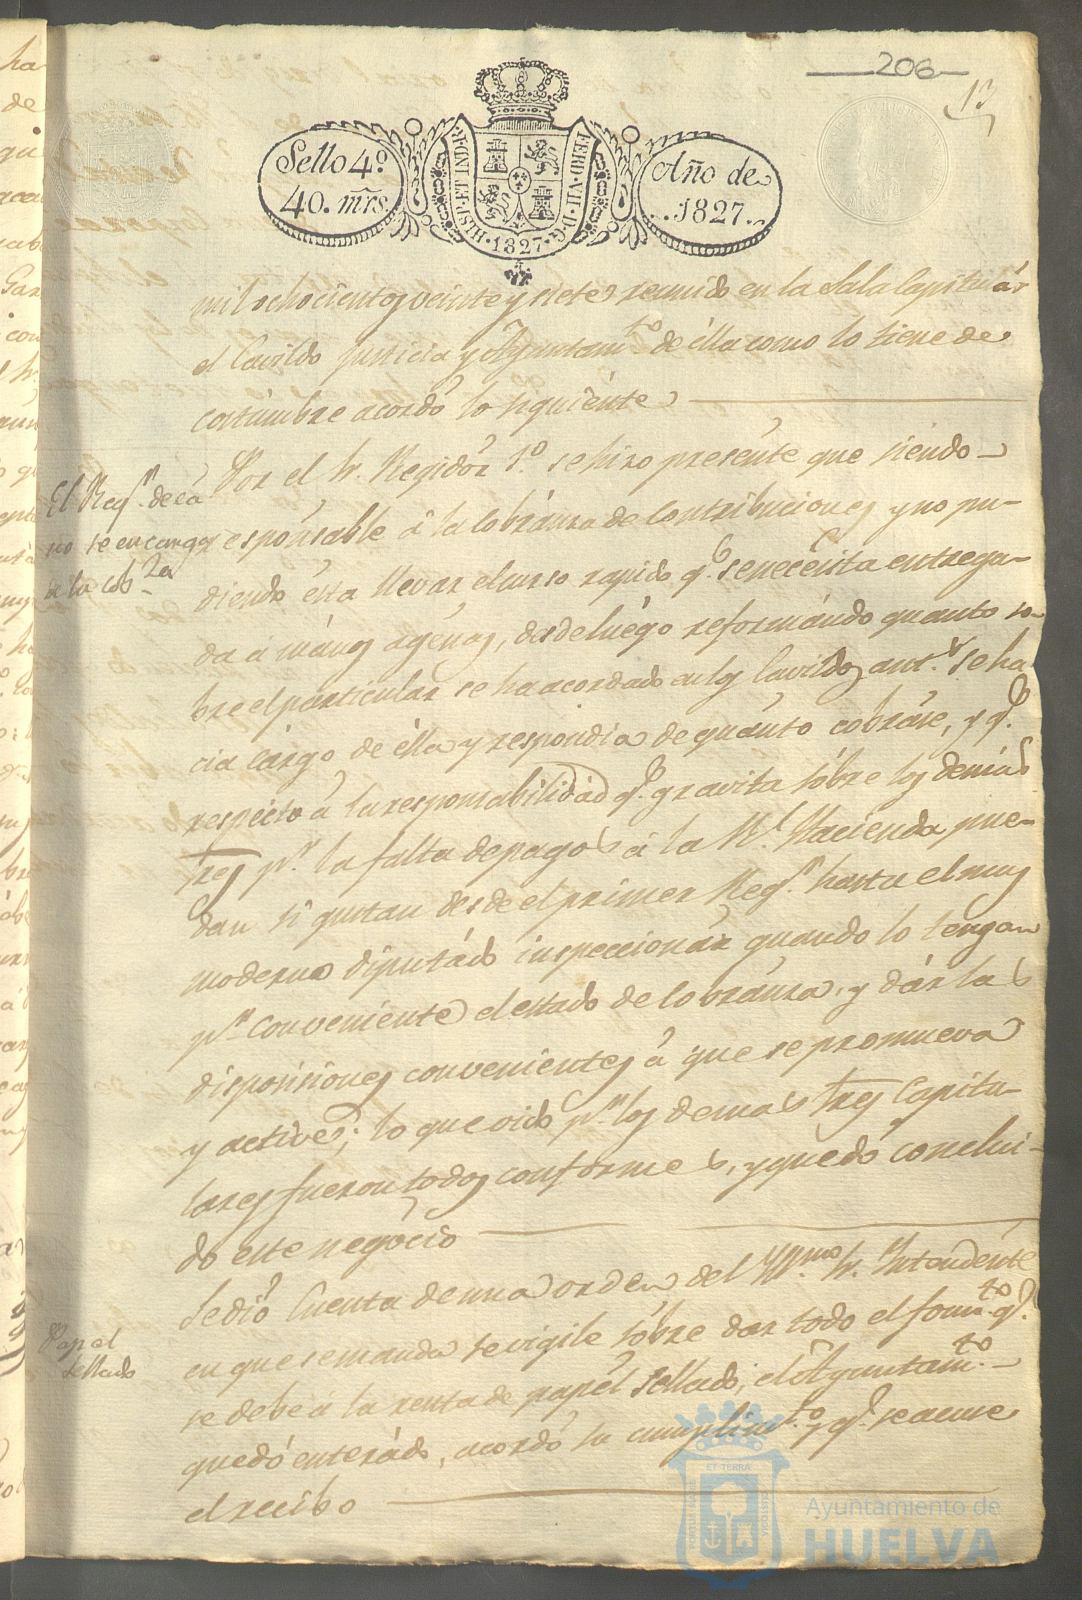 206
13
Sello 4º
40. mrs.
HISP. ET IND. R.
FERD. VII. D. G.
1827
Año de
1827.
mil ochocientos veinte y siete reunido en la Sala Capitulár
el Cavildo Justicia y Ayuntamto. de élla como lo tiene de
costúmbre acordó lo siguiente
Por el Sr. Regidór 1º. se hizo presénte que siendo
El Regr. deca
no se encarga
a la cobza
responsable á la cobránza de Contribuciones y no pu-
diendo ésta llevar el curso rapido q. se necesita entrega-
da á mános agénas, desde luégo reformándo quanto so-
bre el párticular se ha acordado en los Cavildos ants. se ha-
cia cárgo de élla y respondia de quánto cobráse, y q.
respécto á la responsabilidad q. gravita sóbre los demás
Sres pr. la falta de pagos á la Rl. Hacienda pue-
dan si gustan desde el primer Regr. hasta el mas
moderno diputádo inspeccionár quando lo tengan
pr. conveniente el estado de cobránza, y dár las
disposisiones convenientes á que se promueva
y active; lo que oido pr. los demas Sres Capitu-
lares fueron todos conformes, y quedó conclui-
do este negócio
Se dió Cuenta de una orden del Sr. Intendénte
Papel
Sellado
en que se manda se vigile sóbre dar todo el fomto. q.
se debe á la renta de papél Sellado; el Ayuntamto.
quedó enterádo, acordó su cumplimto. y q. se acuse
el recibo
Ayuntamiento de
HUELVA